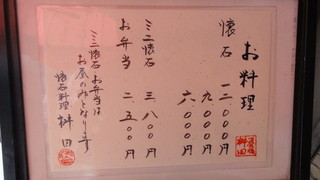 お料理
懐石 一二、〇〇〇円
九、〇〇〇円
六、〇〇〇円
ミニ懐石 三、八〇〇円
お弁当 二、五〇〇円
ミニ懐石 お弁当は
お昼のみとなります
懐石料理 桝田